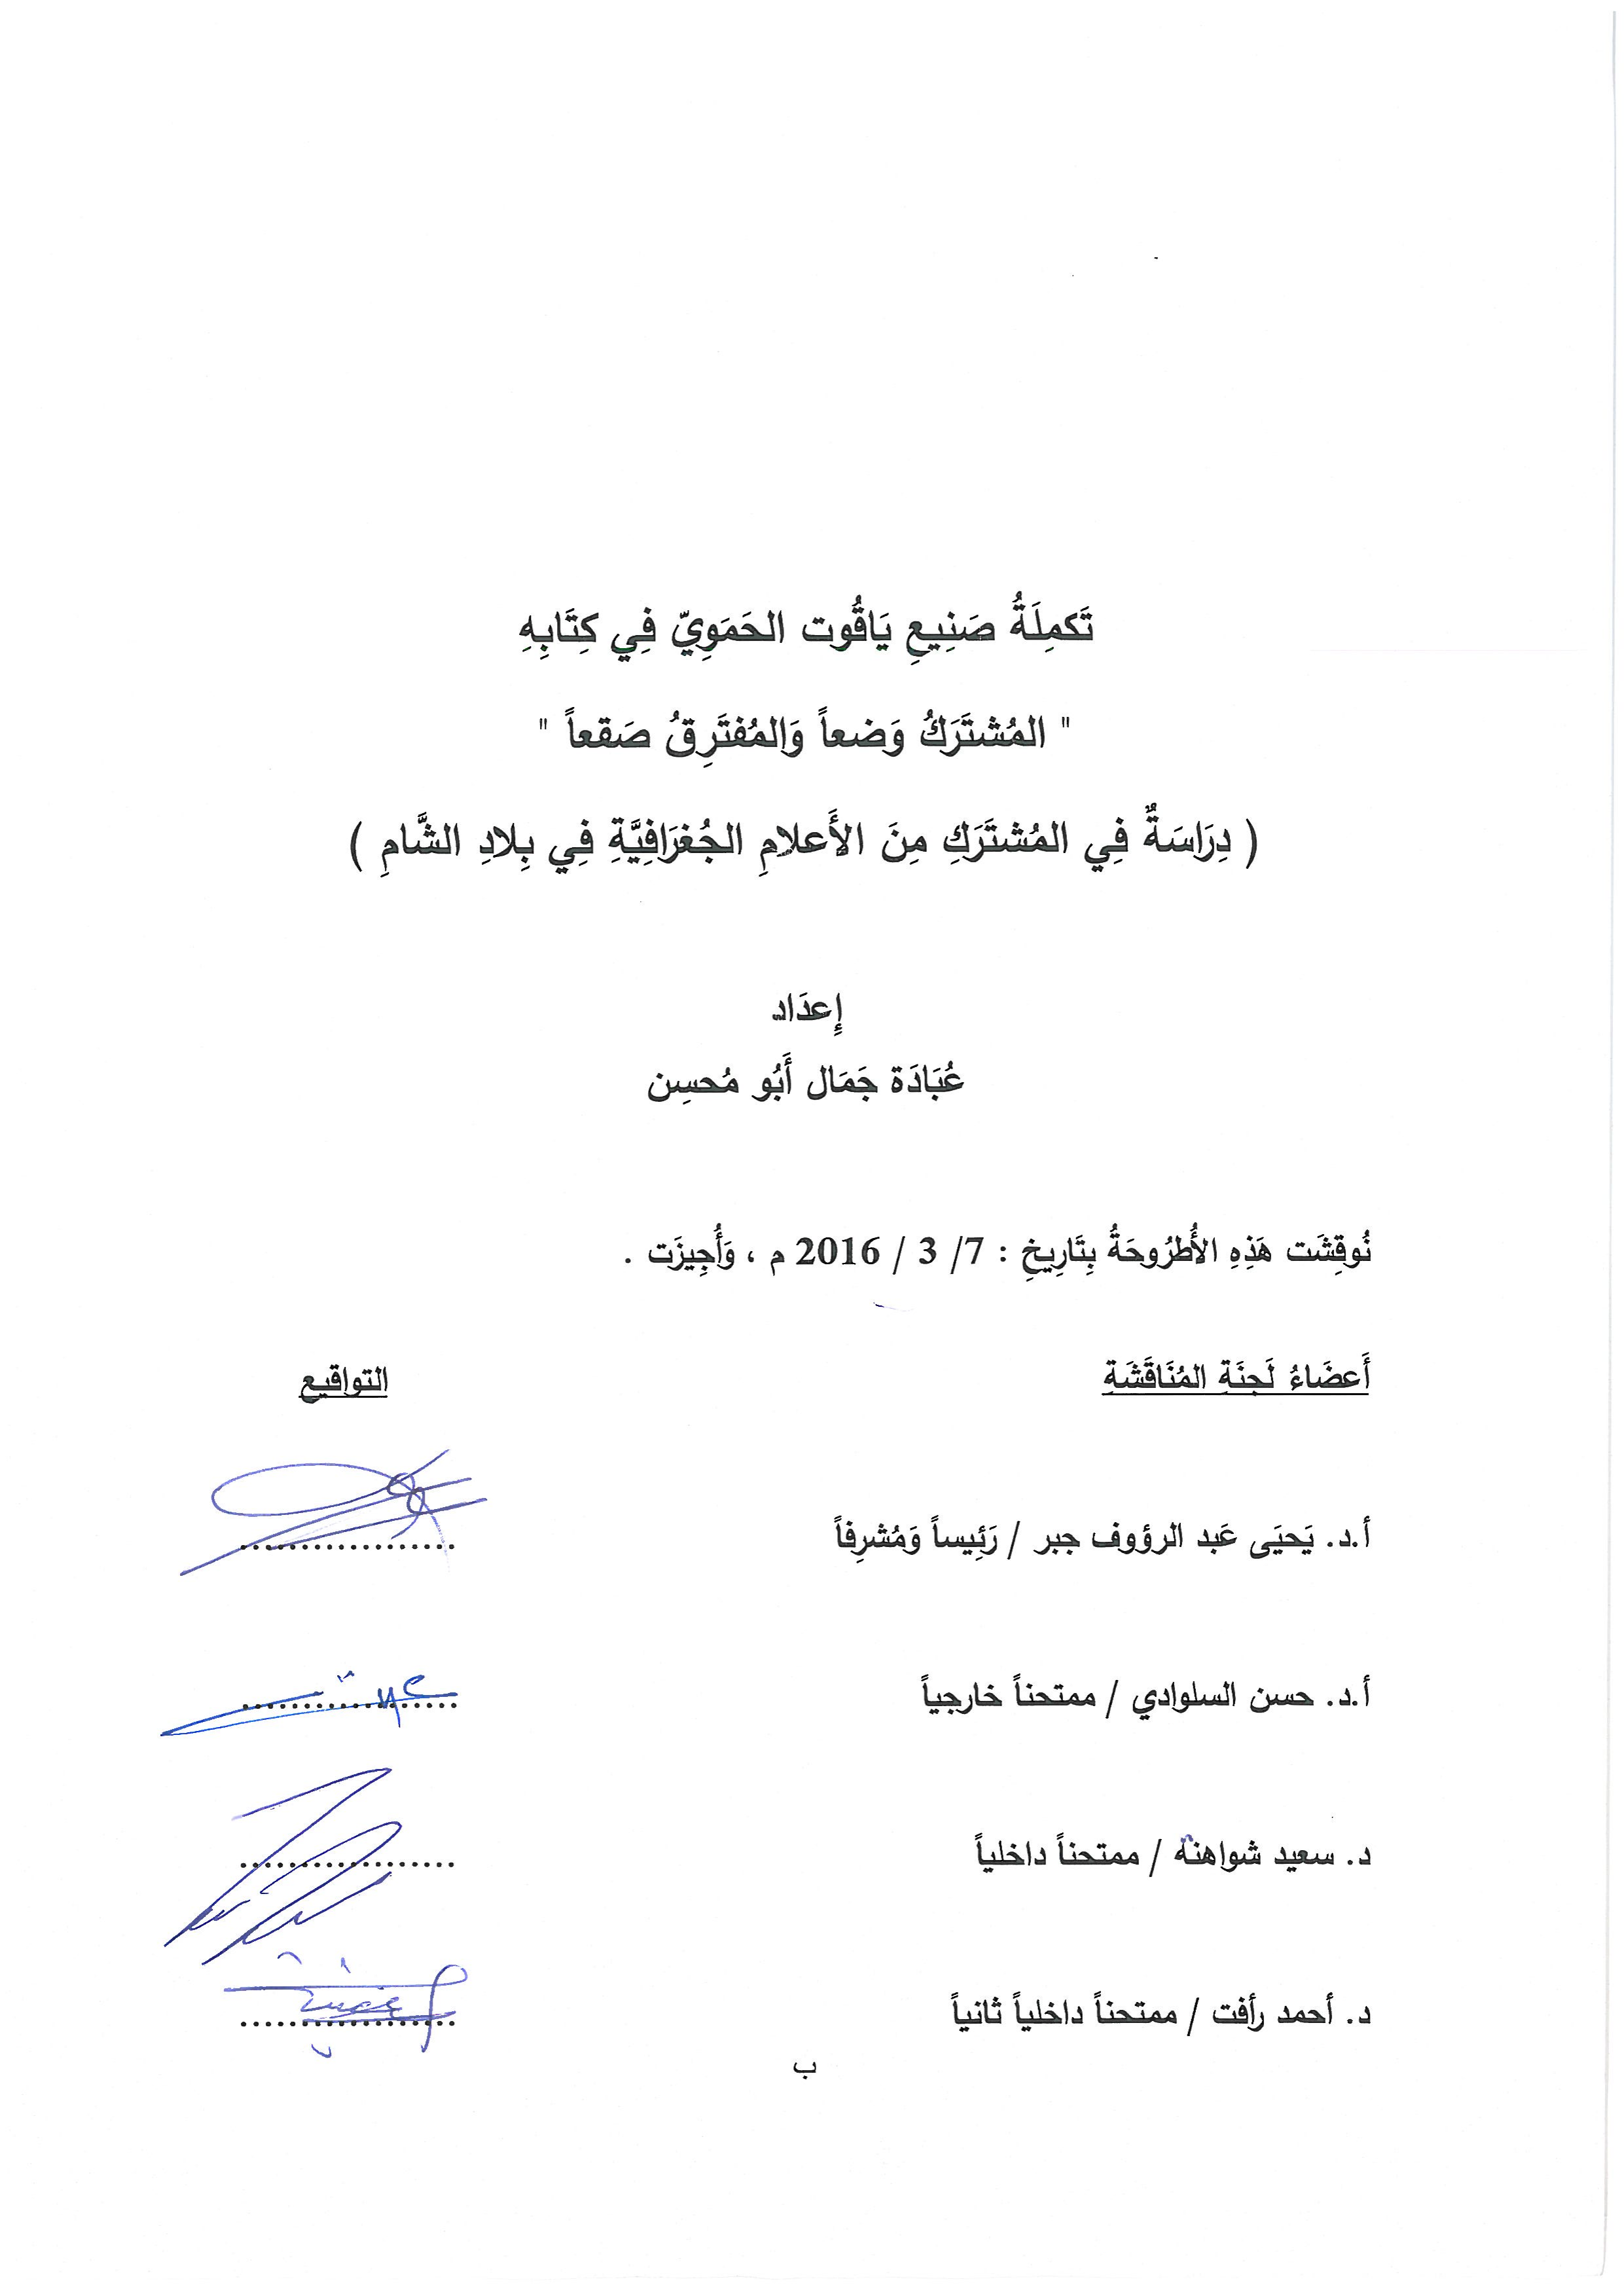 تَكمِلَةُ صَنِيعِ يَاقُوت الحَمَوِيّ فِي كِتَابِهِ
" المُشتَرَكُ وَضعاً وَالمُفتَرِقُ صَقعاً "
( دِرَاسَةٌ فِي المُشتَرَكِ مِنَ الأَعلامِ الجُغرَافِيَّةِ فِي بِلادِ الشَّامِ )
إِعدَاد
عُبَادَة جَمَال أَبُو مُحسِن
نُوقِشَت هَذِهِ الأُطرُوحَةُ بِتَارِيخِ : 7/ 3 / 2016 م ، وَأُجِيزَت .
أَعضَاءُ لَجنَةِ المُنَاقَشَةِ التواقيع
أ.د. يَحيَى عَبد الرؤوف جبر / رَئِيساً وَمُشرِفاً ..................
أ.د. حسن السلوادي / ممتحناً خارجياً ..................
د. سعيد شواهنة / ممتحناً داخلياً ..................
د. أحمد رأفت / ممتحناً داخلياً ثانياً ..................
ب